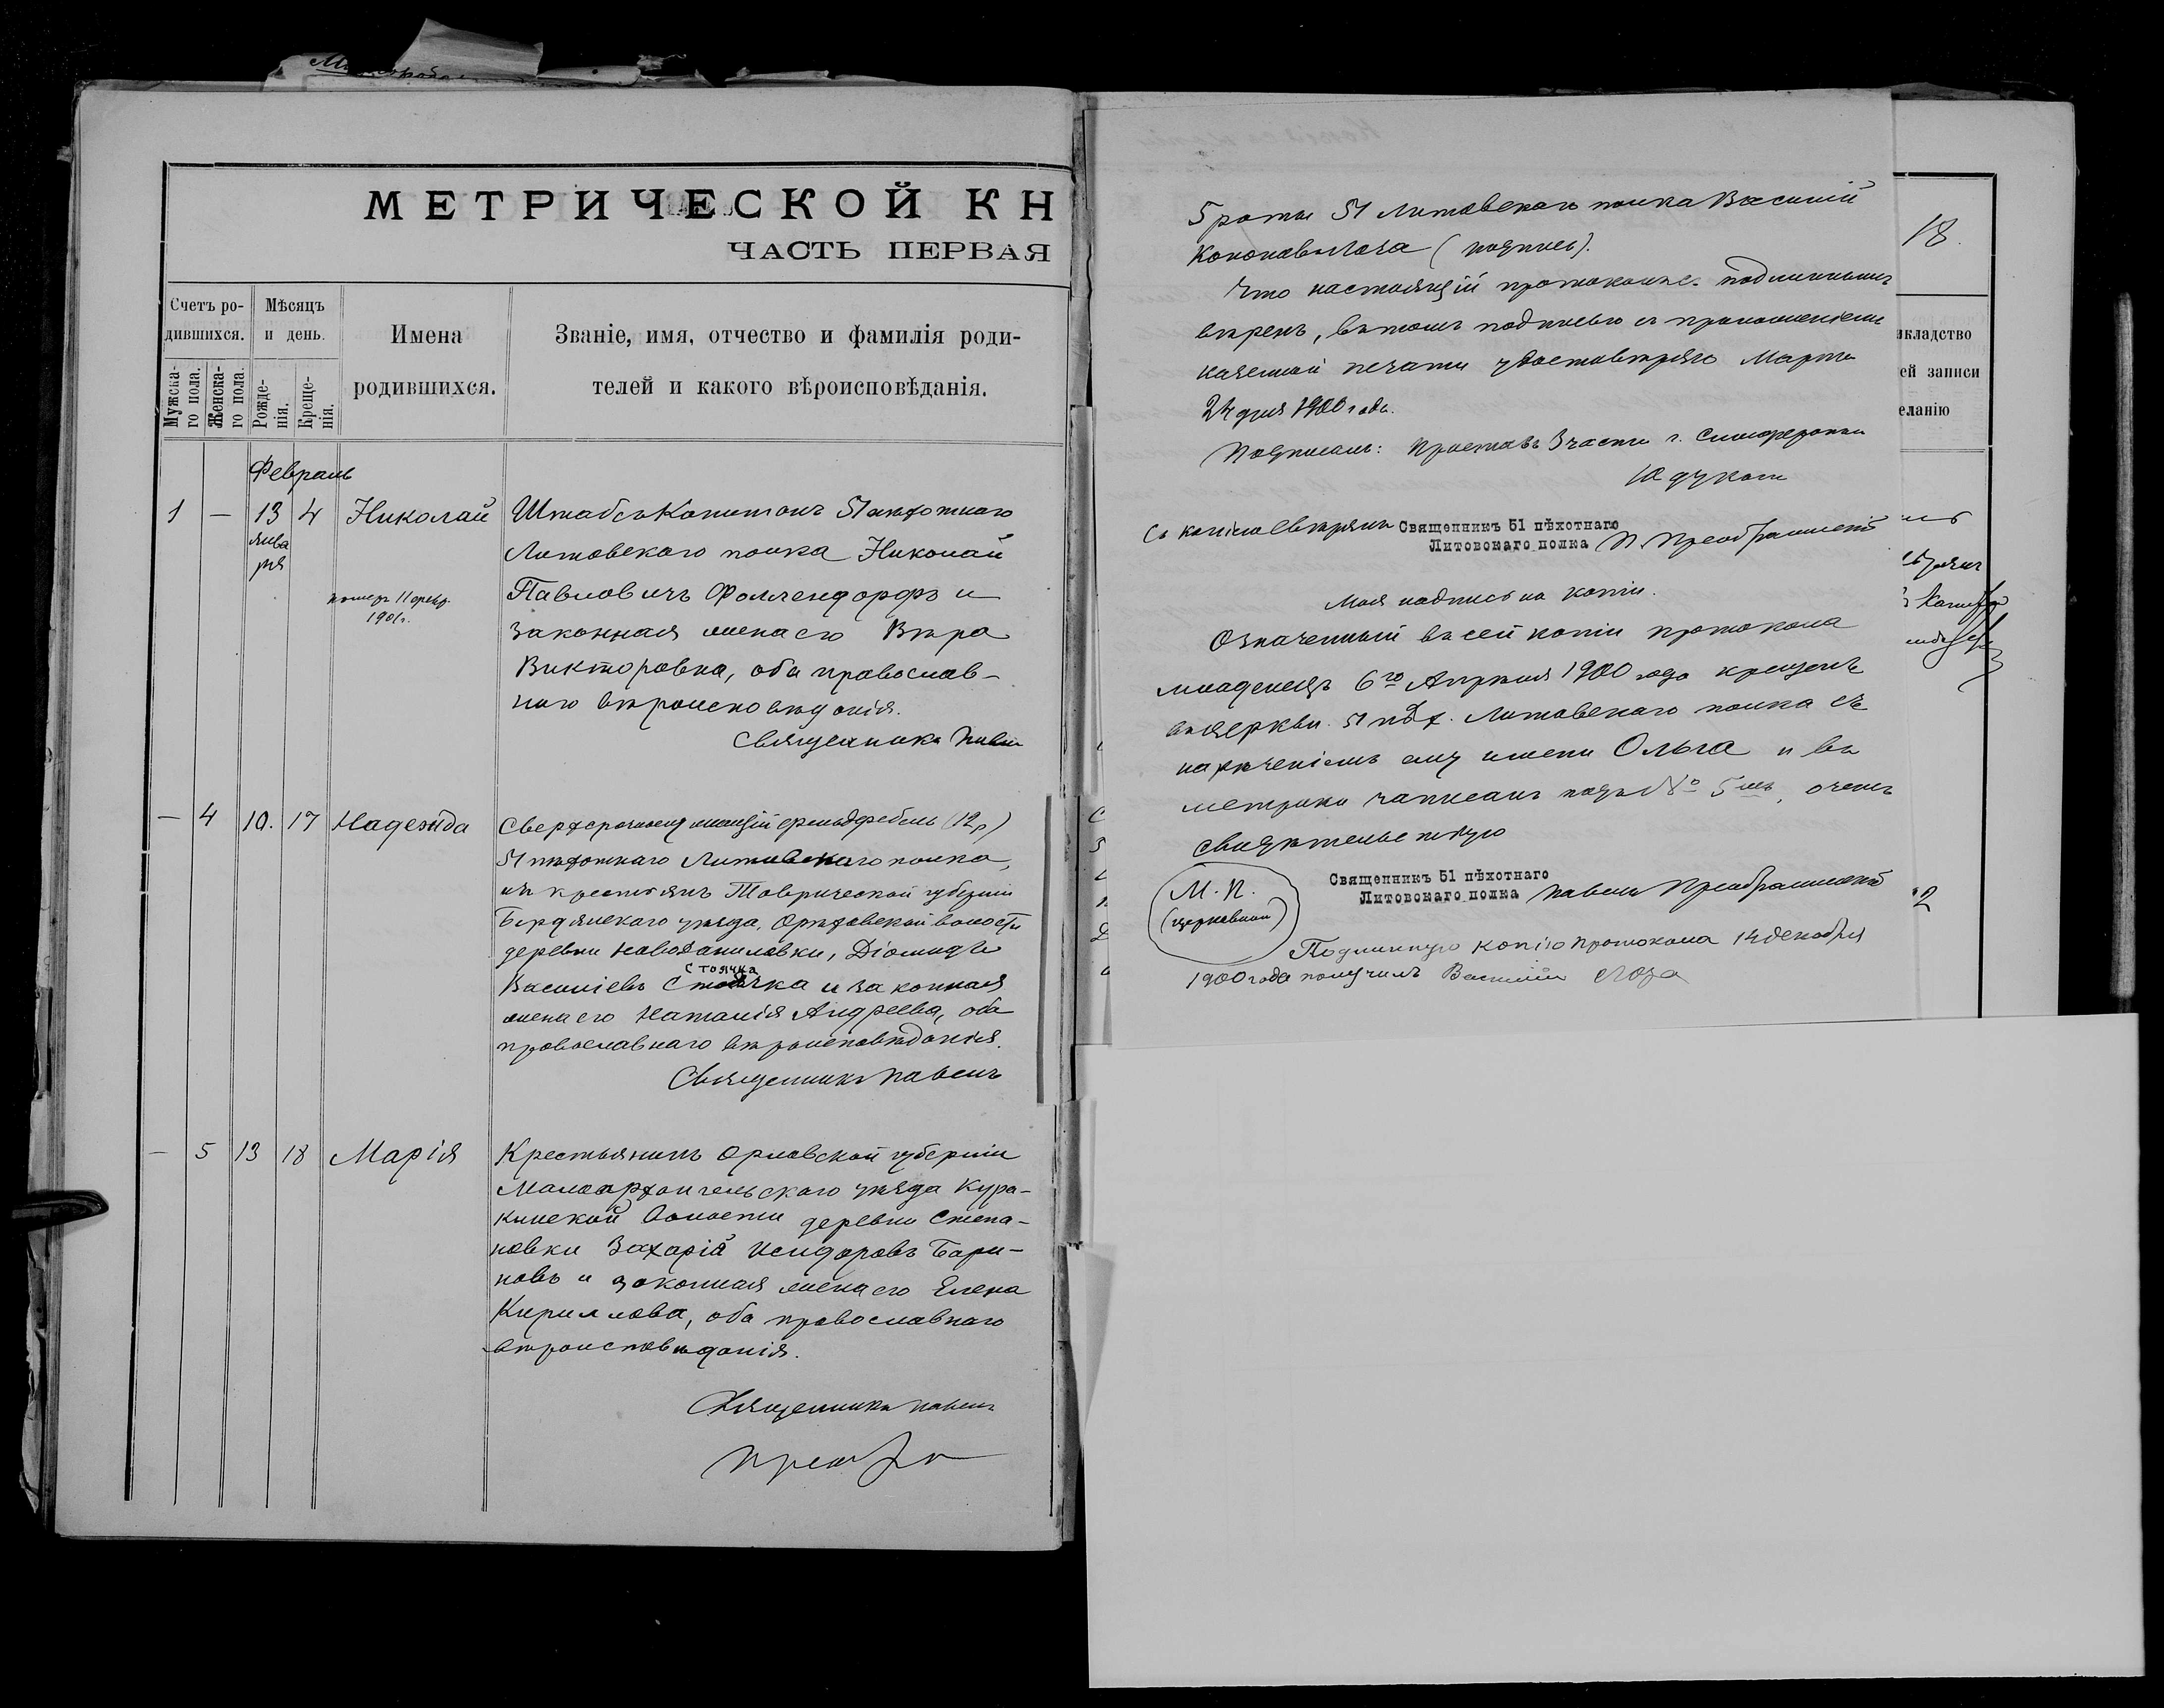 МЕТРИЧЕСКОЙ КН
ЧАСТЬ ПЕРВАЯ
Счетъ ро-
дившихся.
Мужска-
го пола.
Женска-
го пола.
Мѣсяцъ
и день.
Рожде-
нія.
Креще-
нія.
Имена
родившихся.
Званіе, имя, отчество и фамилія роди-
телей и какого вѣроисповѣданія.
Февраль
1 — 13 4 Николай
янва
ря
умеръ 11 февр.
1901г.
Штабсъ Капитанъ 51 пѣхотнаго
Литовскаго полка Николай
Павловичъ Фоллендорфъ и
законная жена его Вѣра
Викторовна, оба православ-
наго вѣроисповѣданія.
Священникъ Павелъ
— 4 10. 17 Надежда
Сверхсрочнослужащій фельдфебель (12р)
51 пѣхотнаго Литовскаго полка,
изъ крестьянъ Таврической губерніи
Бердянскаго уѣзда, Орѣховской волости
деревни Новоданиловки, Діомидъ
Стоячка
Василіевъ Стоячка и законная
жена его Наталія Андреева, оба
православнаго вѣроисповѣданія.
Священникъ Павелъ
— 5 13 18 Марія
Крестьянинъ Орловской губерніи
Малоархангельскаго уѣзда Кура-
кинской волости деревни Степа-
новки Захарій Исидоровъ Бари-
новъ и законная жена его Елена
Кириллова, оба православнаго
вѣроисповѣданія.
Священникъ Павелъ
5 роты 51 Литовскаго полка Василій
(подпись).
Что настоящій протоколъ съ подлиннымъ
вѣренъ, въ томъ подписью и приложеніемъ
казенной печати удостовѣряю Марта
24 дня 1900 года.
Подписалъ: Приставъ 3 части г. Симферополя
Съ копіею свѣрялъ Священникъ 51 пѣхотнаго
Литовскаго полка П. Преображенскій
Моя надпись на копіи.
Означенный въ сей копіи протокола
младенецъ 6го Апрѣля 1900 года крещенъ
въ церкви 51 пѣх. Литовскаго полка съ
нареченіемъ ему имени Ольга и въ
метрики записанъ подъ № 5мъ, о чемъ
свидѣтельствую
М.П.
(церковная)
Священникъ 51 пѣхотнаго
Литовскаго полка Павелъ Преображенскій
Подлинную копію протокола 14 декабря
1900 года получилъ Василій Лоза
18.
укладство
ей записи
еланію